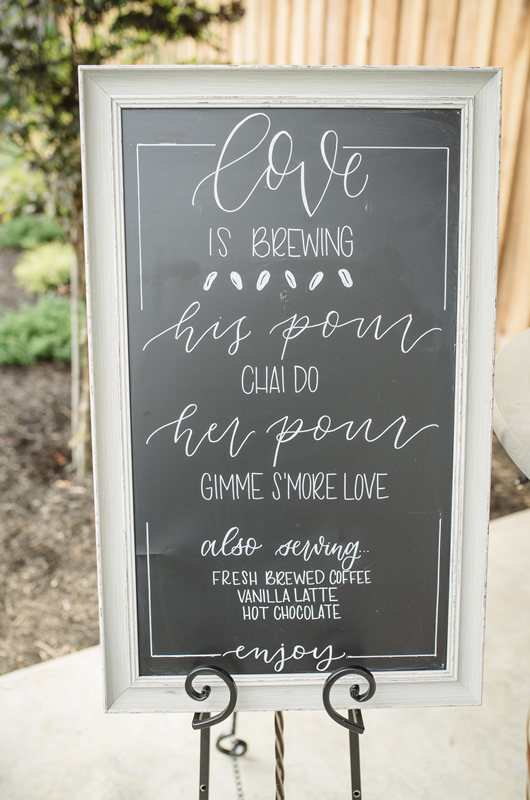 love
IS BREWING
his pour
CHAI DO
her pour
GIMME S'MORE LOVE
also serving...
FRESH BREWED COFFEE
VANILLA LATTE
HOT CHOCOLATE
enjoy